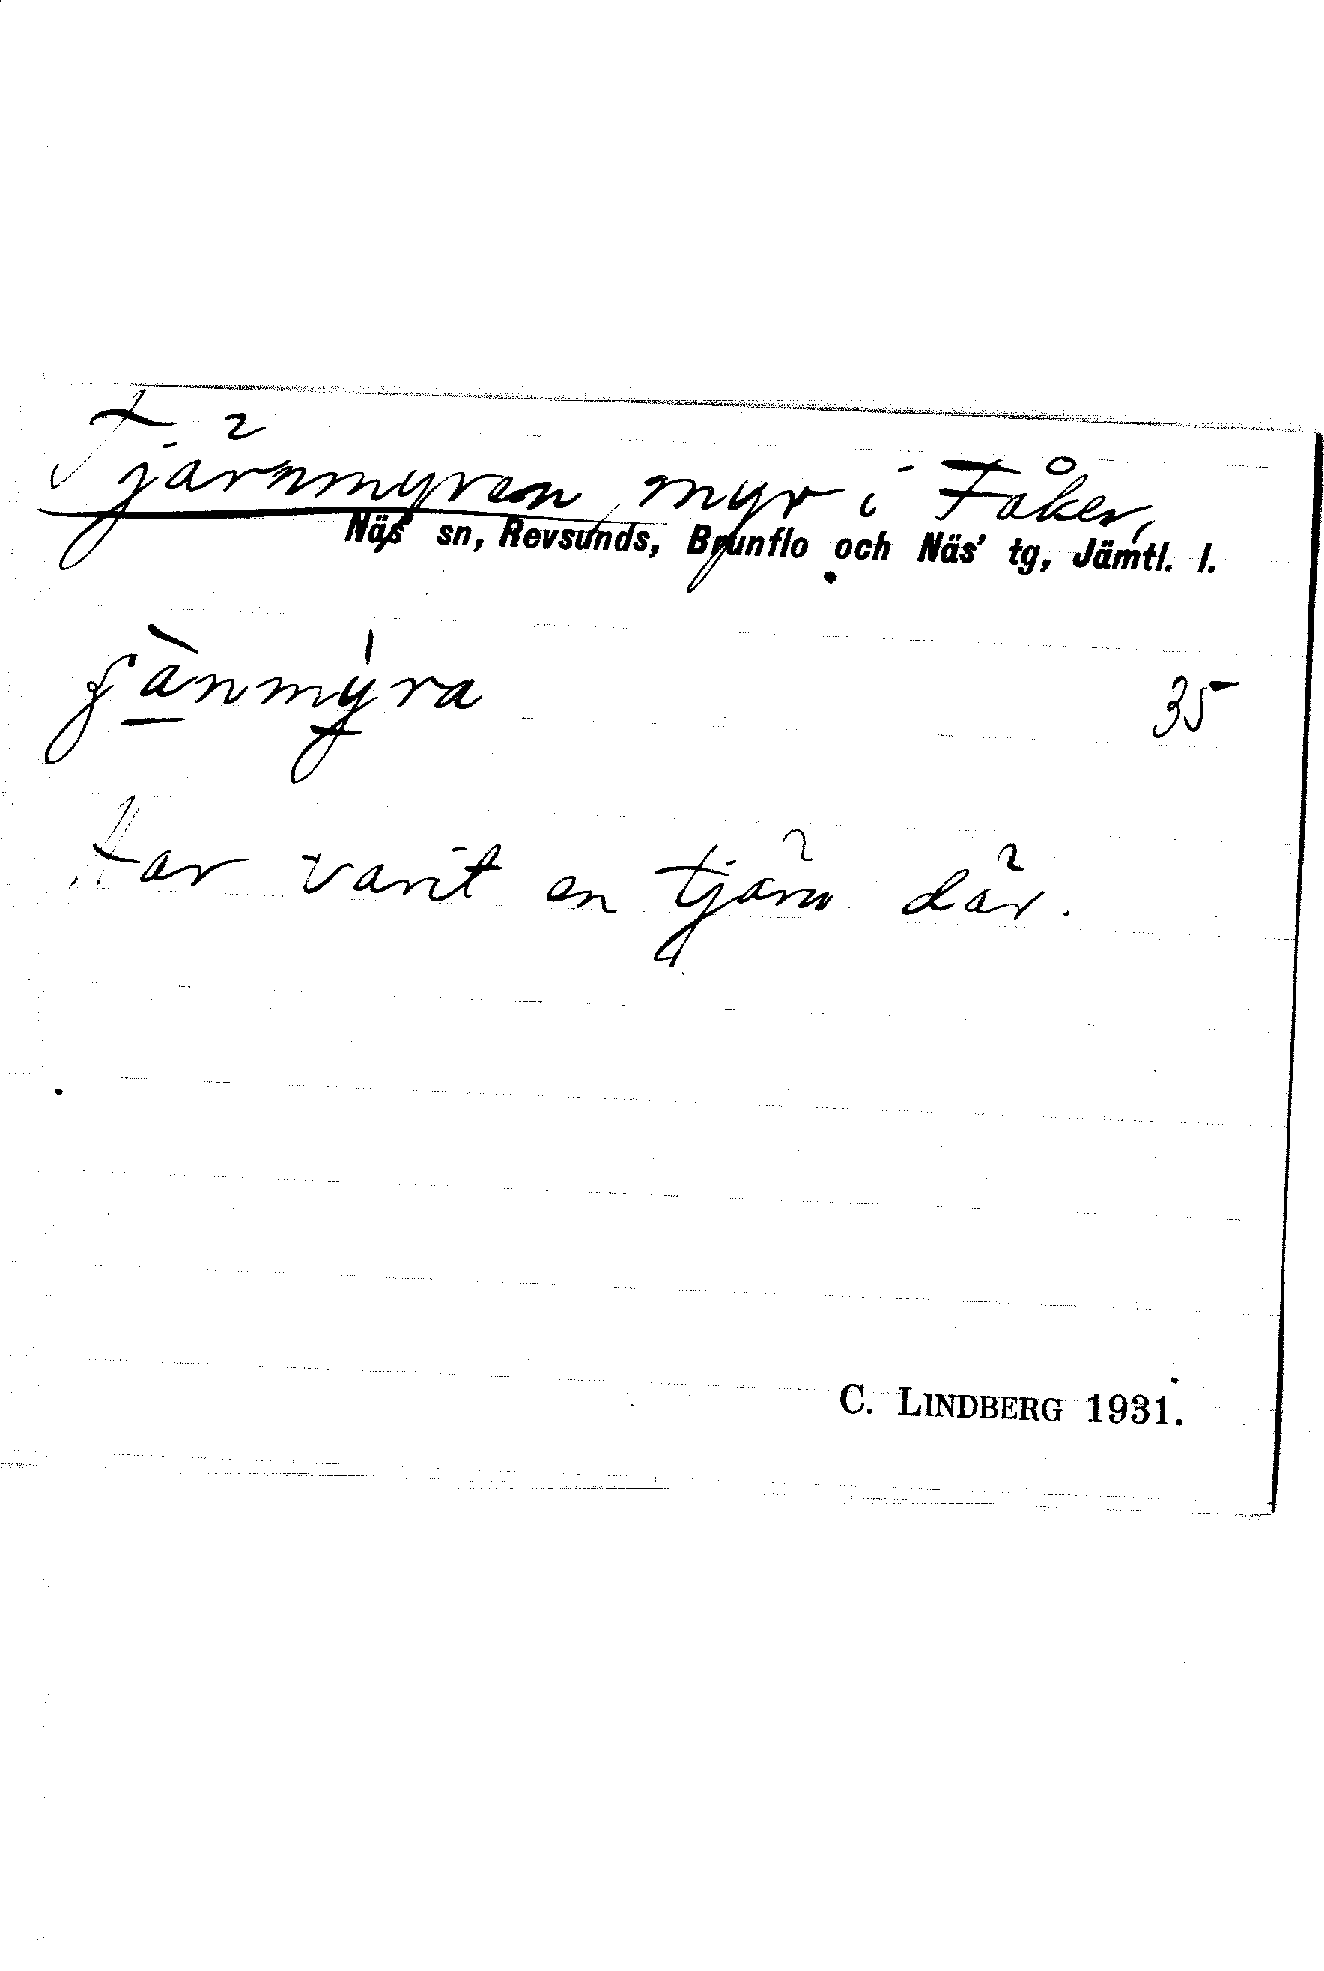 Tjärnmyren, myr i Fåker,
Näs' sn, Revsunds, Brunflo och Näs' tg, Jämtl. l.
35
Har varit en tjärn där.
C. LINDBERG 1931.